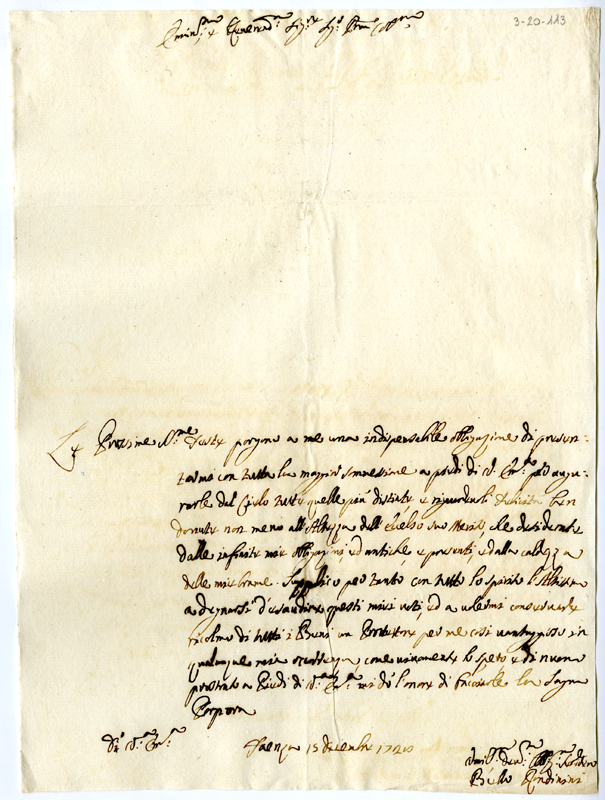 3-20-113
Emin.mo e Reverend.mo Sig.re Sig.r Pron.
Le Prossime S.me Feste porgono a me una indispensabile obligazione di presen-
tarmi con tutta la maggior a piedi di V. Em.za per augu-
rarle dal Cielo tutte quelle più distinte e riguardevoli ben
dovute non meno all'Altezza dell'Eccelso suo Merito, che desiderate
dalle infinite mie obligazioni, ed antiche, e presenti, e dalla caldezza
delle mie brame. Supplico per tanto, con tutto lo spirito l'Altissimo
a degnarsi d'esaudire questi miei voti, ed a volermi conservarle
ricolmo di tutti i Beni un Protettore per me così vantaggioso in
qualunque mia occorrenza, come vivamente lo spero, e di nuovo
prostrato a Piedi di V. Em.za mi dò l'onore di baciarle la Sagra
Porpora
Di V. Em.za
Faenza 15 dicembre 1720
Umil.mo Dev.mo Obl.mo
Rondinini